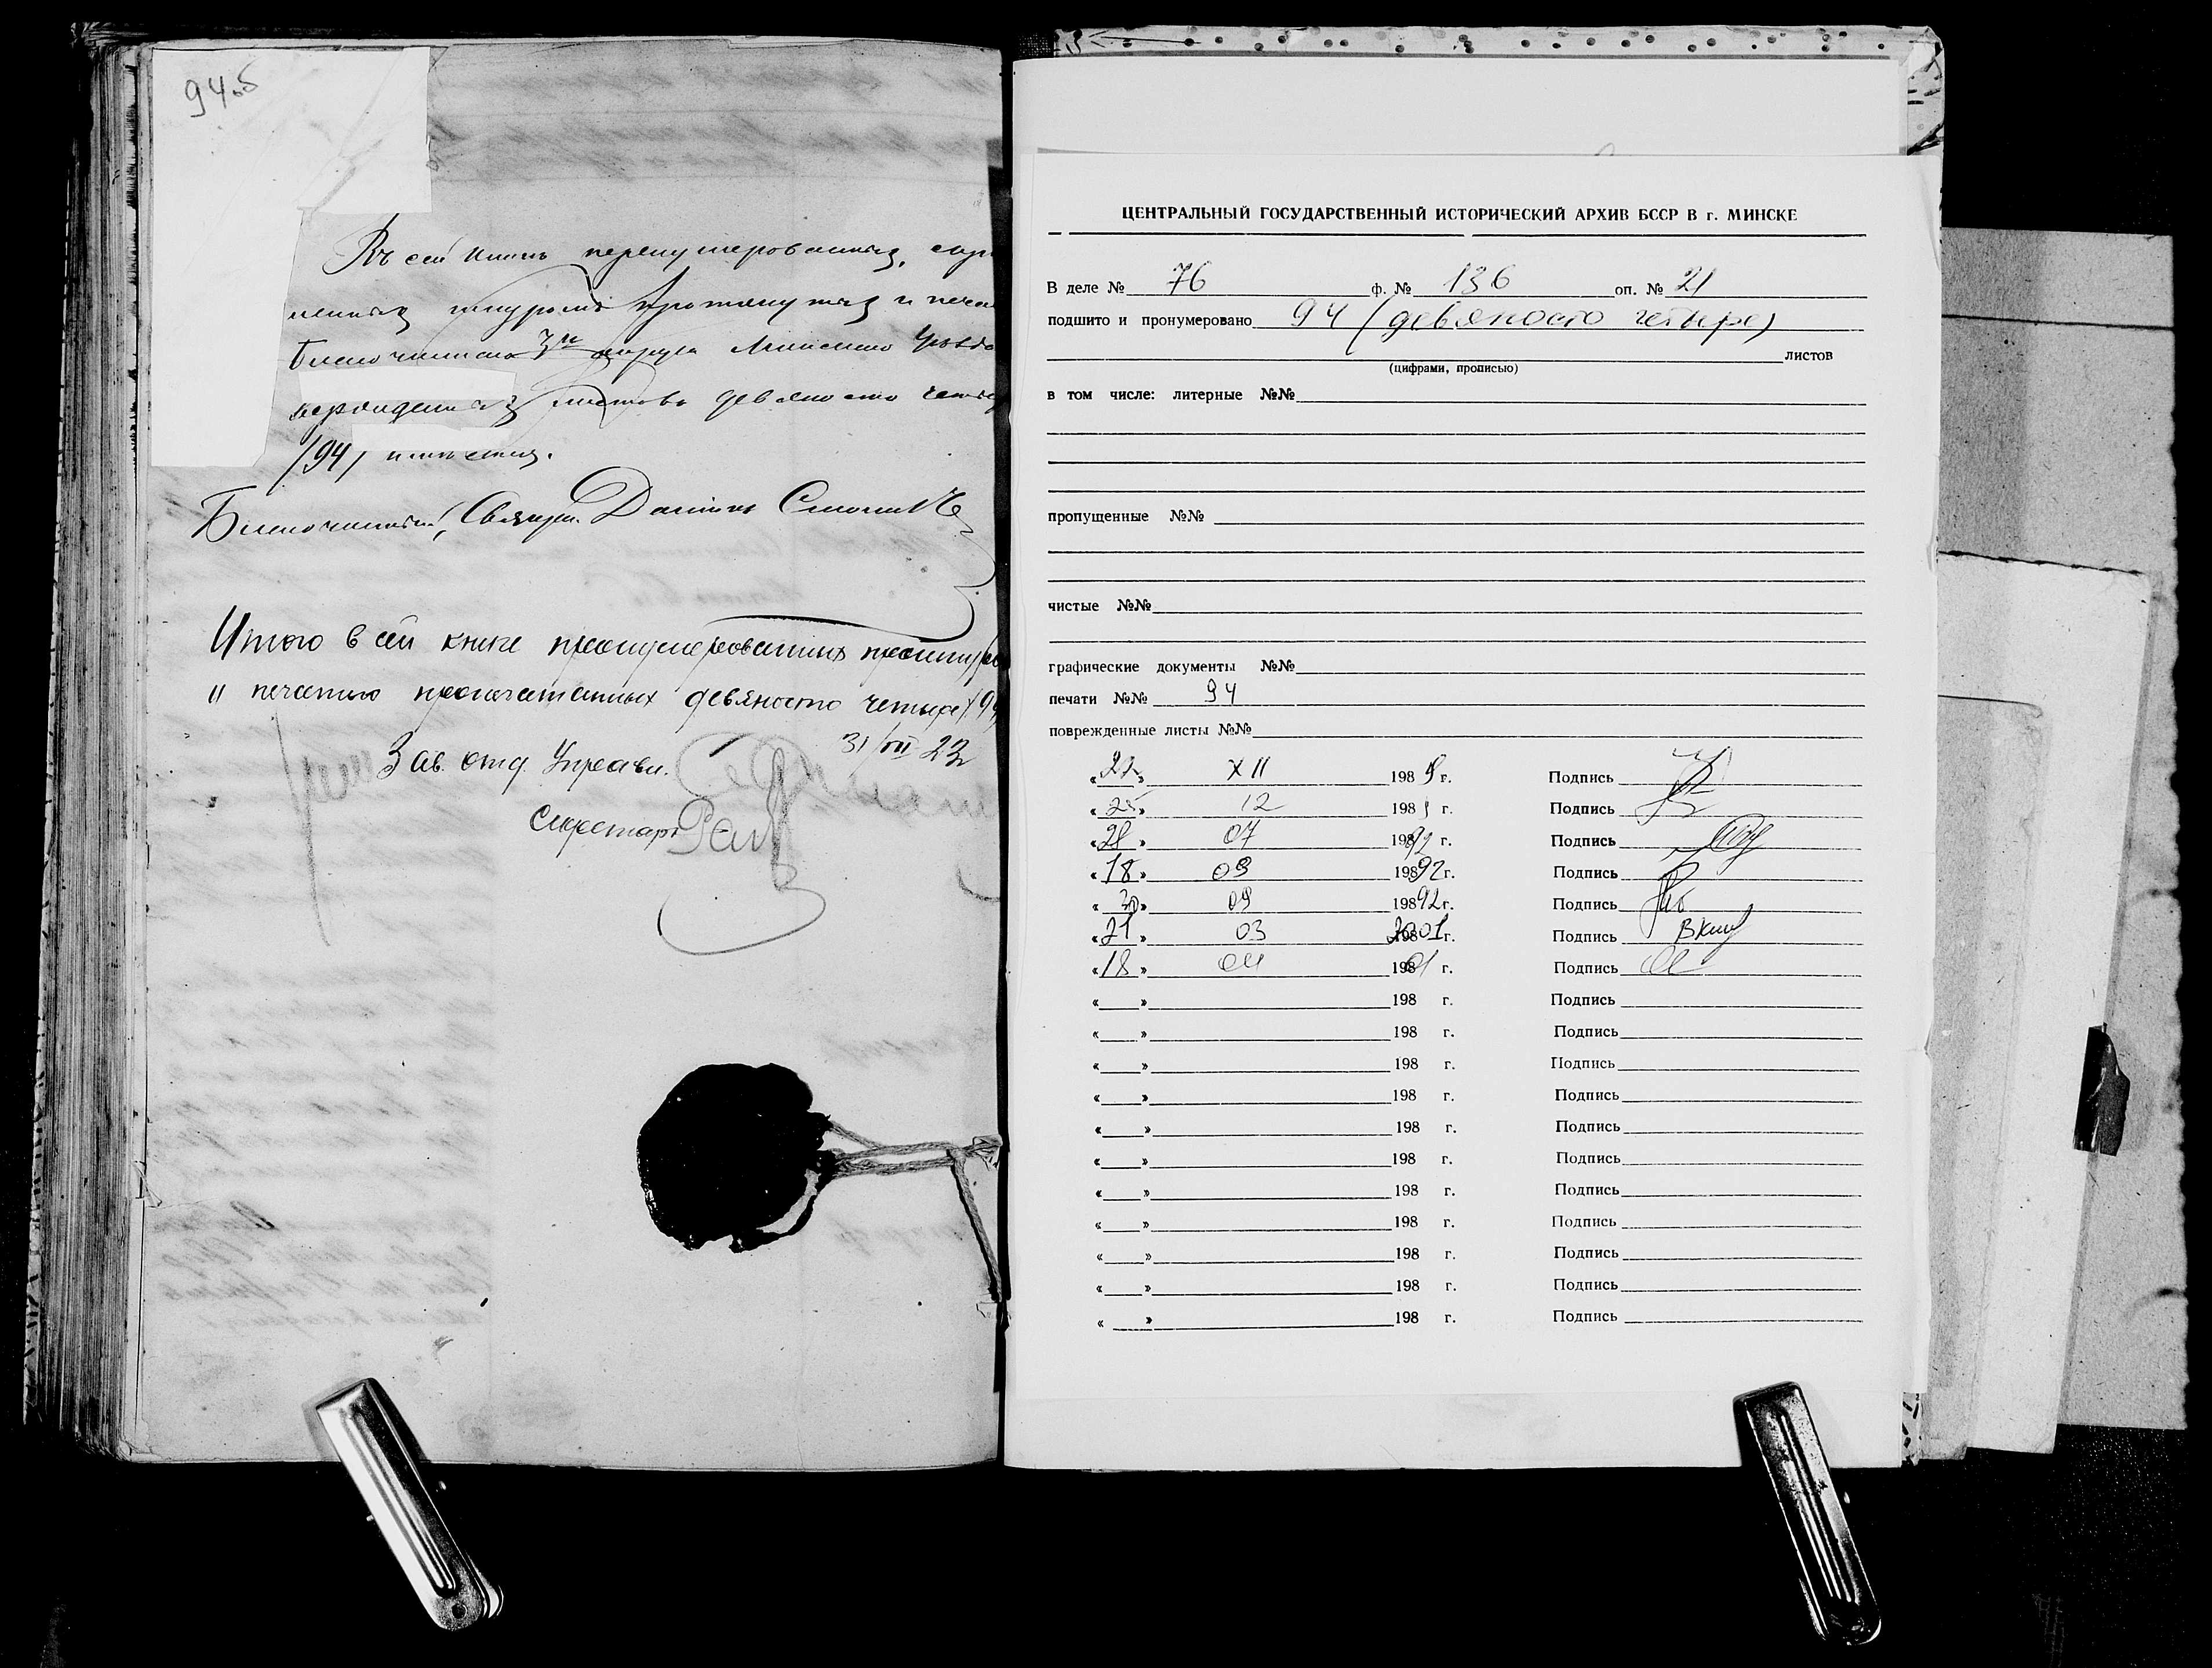 94об
Въ сей книгѣ перенумерованныхъ, скрѣ
пленныхъ шнуромъ протянутыхъ и печа
Благочиннаго 3го округа Минскаго уѣзда
утвержденныхъ листовъ девяносто четыр
/94/
Благочинный, Священ.
Итого в сей книге пронумерованных прошнуро
и печатью пропечатанных девяносто четыре /94
31/VII 23
Зав. отд. Управл.
Секретарь
ЦЕНТРАЛЬНЫЙ ГОСУДАРСТВЕННЫЙ ИСТОРИЧЕСКИЙ АРХИВ БССР В г. МИНСКЕ
В деле № 76 ф. № 136 оп. № 21
подшито и пронумеровано 94 (девяносто четыре)
листов
(цифрами, прописью)
в том числе: литерные №№
пропущенные №№
чистые №№
графические документы №№
печати №№ 94
поврежденные листы №№
«22» XII 1989 г. Подпись
«25» 12 1989 г. Подпись
«28» 07 19892 г. Подпись
«18» 09 19892 г. Подпись
«30» 09 19892 г. Подпись
«21» 03 2001 г. Подпись
«18» 04 19801 г. Подпись
« » 198 г. Подпись
« » 198 г. Подпись
« » 198 г. Подпись
« » 198 г. Подпись
« » 198 г. Подпись
« » 198 г. Подпись
« » 198 г. Подпись
« » 198 г. Подпись
« » 198 г. Подпись
« » 198 г. Подпись
« » 198 г. Подпись